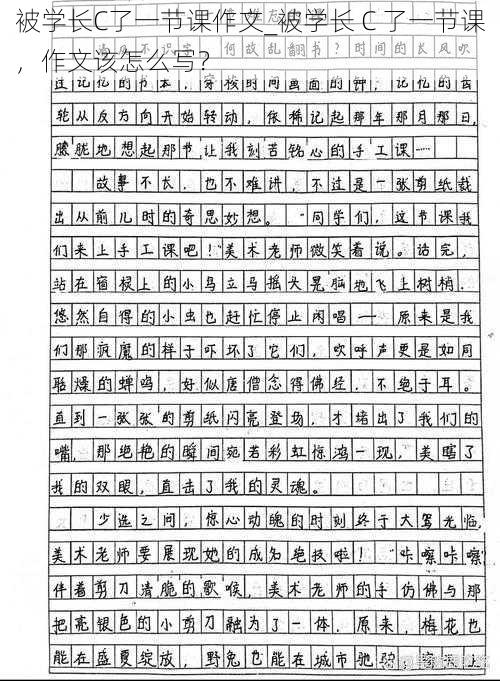 被学长C了一节课作文_被学长 C 了一节课
，作文该怎么写？
何故乱翻书？时间的长风吹
过记忆的书本，穿梭时间画面的钟，记忆的齿
轮从反方向开始转动，依稀记起那年那月那日，
朦胧地想起那节让我刻苦铭心的手工课……
故事不长，也不难讲，不过是一张剪纸裁
出从前儿时的奇思妙想。“同学们，这节课我
们来上手工课吧！”美术老师微笑着说。话完，
站在窗棂上的小鸟立马摇头晃脑地飞上树梢，
悠然自得的小虫也赶忙停止闲唱——原来是我
们那疯魔的样子吓坏了它们，欢呼声更是如同
聒燥的蝉鸣，好似唐僧念得佛经，不绝于耳。
直到一张张的剪纸闪亮登场，才堵出了我们的
嘴，那绝艳的瞬间宛若彩虹惊鸿一现，美瞎了
我的双眼，直击了我的灵魂。
少选之间，惊心动魄的时刻终于大驾光临，
美术老师要展现她的成名绝技啦！“咔嚓咔嚓”
伴着剪刀清脆的歌喉，美术老师的手仿佛与那
把亮银色的小剪刀融为了一体，原来，梅花也
能在盛夏绽放，野兔也能在城市驰